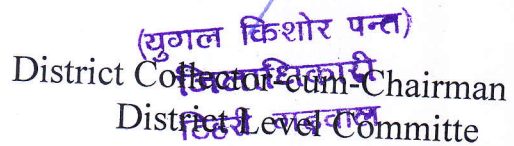 (युगल किशोर पन्त)
जिलाधिकारी
District Collector-cum-Chairman
टिहरी गढ़वाल
District Level Committe